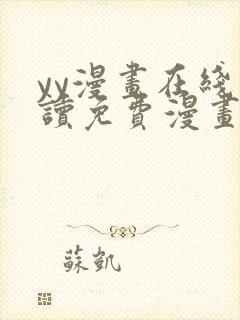 yy漫畫在綫
讀免費漫畫
蘇凱